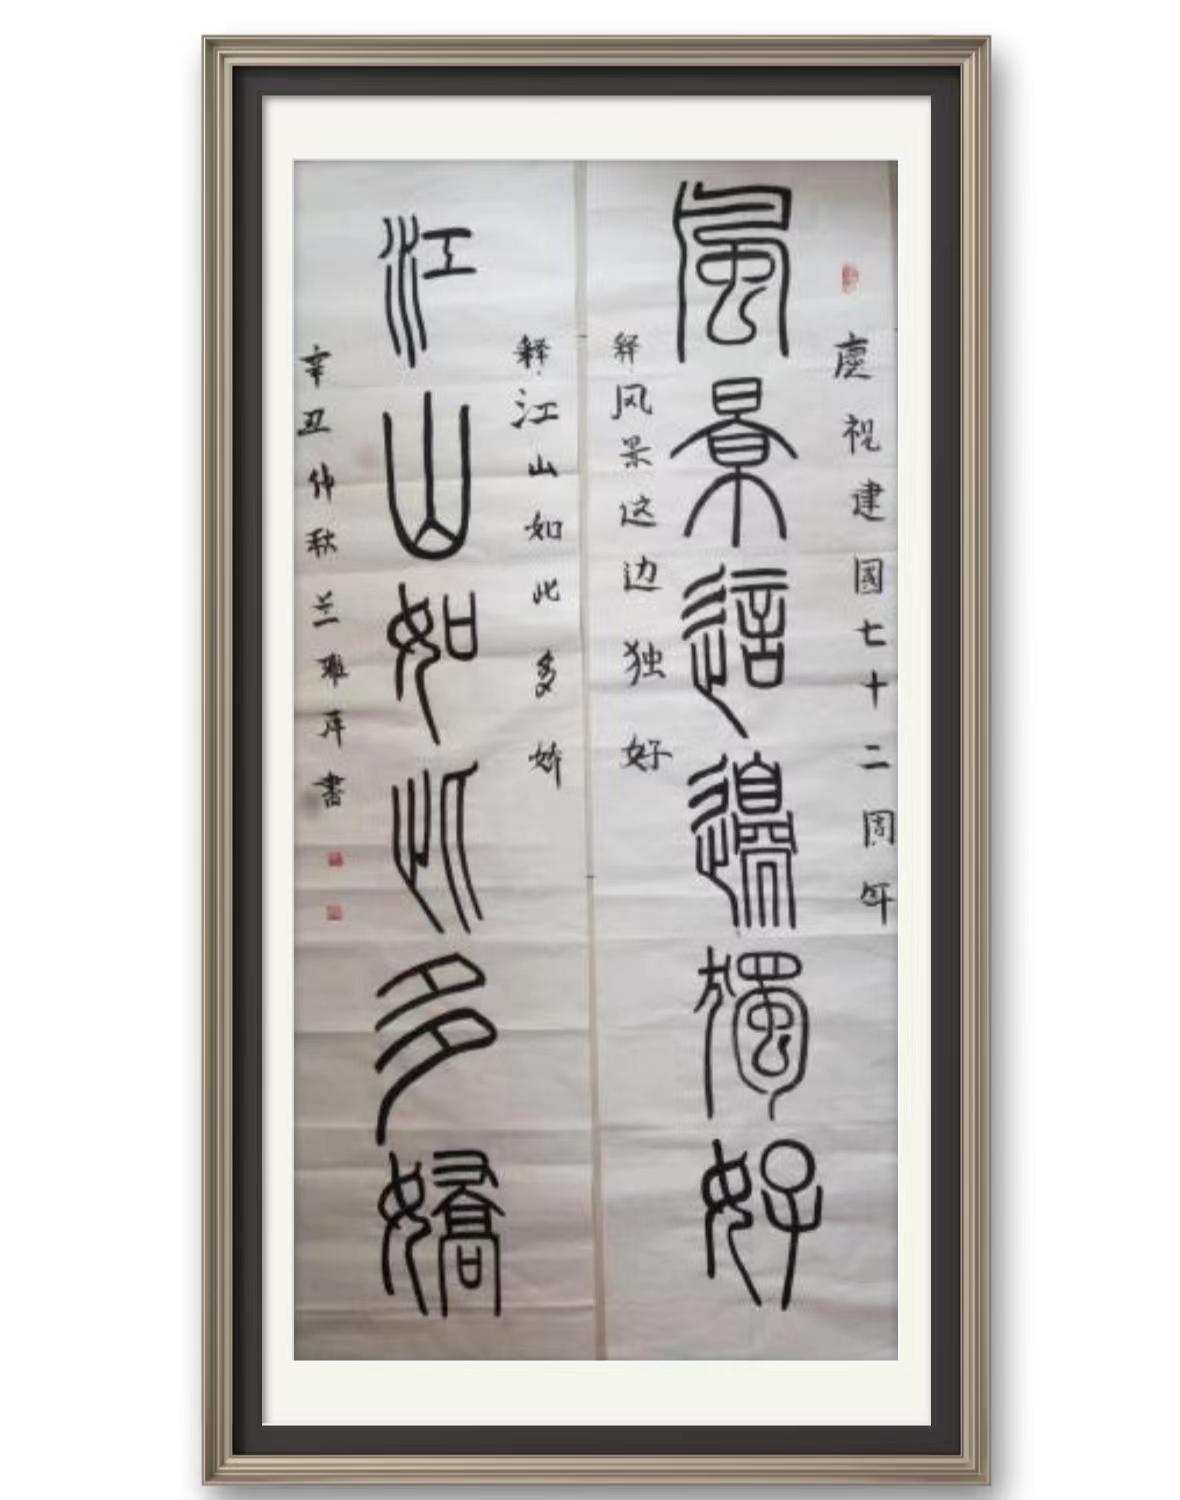 慶祝建國七十二周年
風景這邊獨好
释风景这边独好
释江山如此多娇
江山如此多嬌
辛丑仲秋兰雅萍書